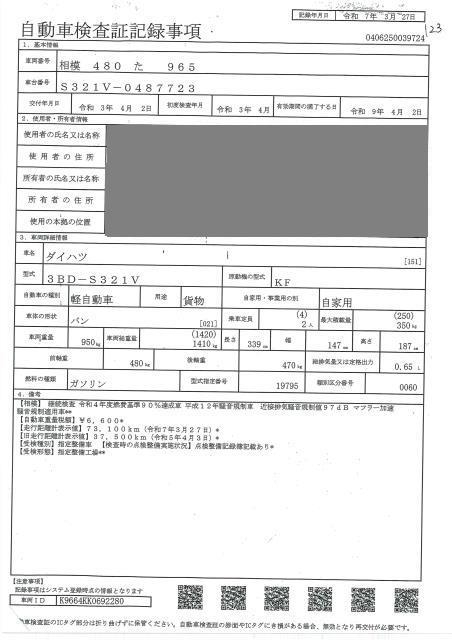 記録年月日 令和 7年 3月 27日
自動車検査証記録事項
0406250039724
23
1. 基本情報
車両番号 相模 480 た 965
車台番号 S321V-0487723
交付年月日 令和 3年 4月 2日 初度検査年月 令和 3年 4月 有効期間の満了する日 令和 9年 4月 2日
2. 使用者・所有者情報
使用者の氏名又は名称
使用者の住所
所有者の氏名又は名称
所有者の住所
使用の本拠の位置
3. 車両詳細情報
車名 ダイハツ [151]
型式 3BD-S321V 原動機の型式 KF
自動車の種別 軽自動車 用途 貨物 自家用・事業用の別 自家用
車体の形状 バン [021] 乗車定員 (4) 2人 最大積載量 (250) 350kg
車両重量 950kg 車両総重量 (1420) 1410kg 長さ 339cm 幅 147cm 高さ 187cm
前軸重 480kg 後軸重 470kg 総排気量又は定格出力 0.65L
燃料の種類 ガソリン 型式指定番号 19795 類別区分番号 0060
4. 備考
【相模】 継続検査 令和4年度燃費基準90%達成車 平成12年騒音規制車 近接排気騒音規制値97dB マフラー加速
騒音規制適用車**
【自動車重量税額】¥6,600*
【走行距離計表示値】73,100km（令和7年3月27日）*
【旧走行距離計表示値】37,500km（令和5年4月3日）*
【受検種別】指定整備車 【検査時の点検整備実施状況】点検整備記録簿記載あり*
【受検形態】指定整備工場**
【注意事項】
記録事項はシステム登録時点の情報となります
車両ID K9664KK0692280
車検査証のICタグ部分は折り曲げずに保管ください。自動車検査証の券面やICタグにき損がある場合、無効となり再交付が必要です。